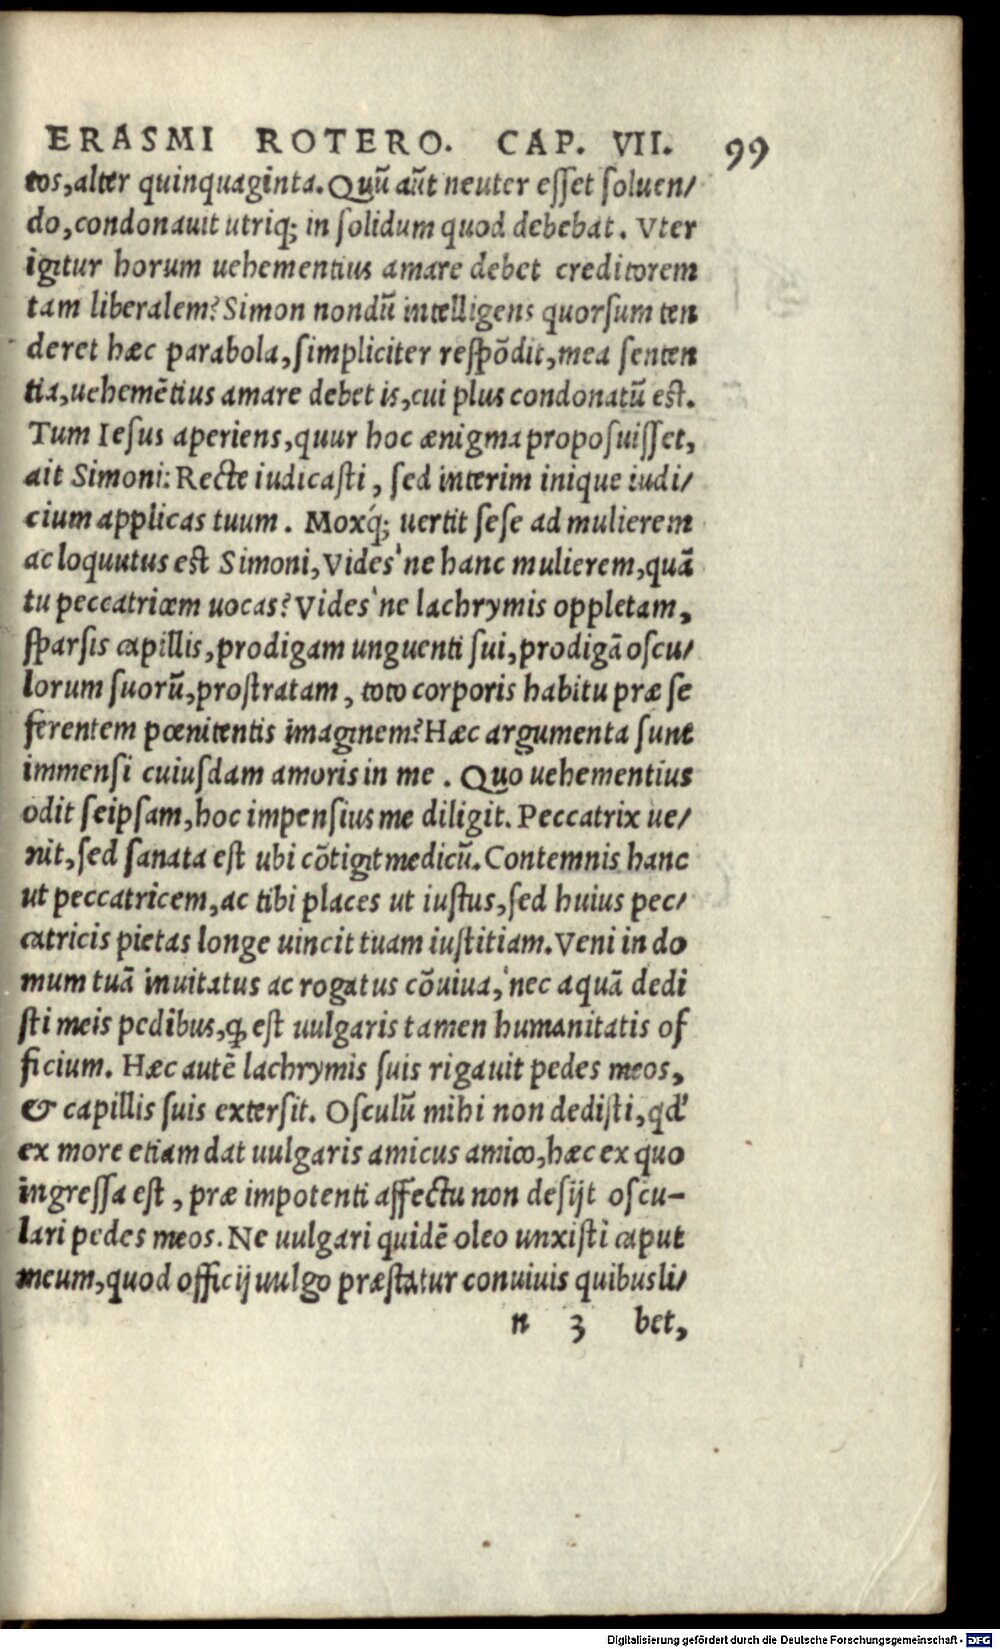 ERASMI ROTERO. CAP. VII. 99
tos, alter quinquaginta. Quũ aũt neuter eſſet ſoluen/
do, condonauit utriq; in ſolidum quod debebat. Vter
igitur horum uehementius amare debet creditorem
tam liberalem? Simon nondũ intelligens quorſum ten
deret hæc parabola, ſimpliciter reſpõdit, mea ſenten
tia, uehemẽtius amare debet is, cui plus condonatũ eſt.
Tum Ieſus aperiens, quur hoc ænigma propoſuiſſet,
ait Simoni: Recte iudicaſti, ſed interim inique iudi/
cium applicas tuum. Moxq́; uertit ſeſe ad mulierem
ac loquutus eſt Simoni, Vides'ne hanc mulierem, quã
tu peccatricem uocas? Vides'ne lachrymis oppletam,
ſparſis capillis, prodigam unguenti ſui, prodigã oſcu/
lorum ſuorũ, proſtratam, toto corporis habitu præ ſe
ferentem pœnitentis imaginem? Hæc argumenta ſunt
immenſi cuiuſdam amoris in me. Quo uehementius
odit ſeipſam, hoc impenſius me diligit. Peccatrix ue/
nit, ſed ſanata eſt ubi cõtigit medicũ. Contemnis hanc
ut peccatricem, ac tibi places ut iuſtus, ſed huius pec/
catricis pietas longe uincit tuam iuſtitiam. Veni in do
mum tuã inuitatus ac rogatus cõuiua, nec aquã dedi
ſti meis pedibus, ꝙ eſt uulgaris tamen humanitatis of
ficium. Hæc autẽ lachrymis ſuis rigauit pedes meos,
& capillis ſuis exterſit. Oſculũ mihi non dediſti, qd'
ex more etiam dat uulgaris amicus amico, hæc ex quo
ingreſſa eſt, præ impotenti affectu non deſijt oſcu-
lari pedes meos. Ne uulgari quidẽ oleo unxiſti caput
meum, quod officij uulgo præſtatur conuiuis quibusli/
n 3 bet,
Digitalisierung gefördert durch die Deutsche Forschungsgemeinschaft - DFG